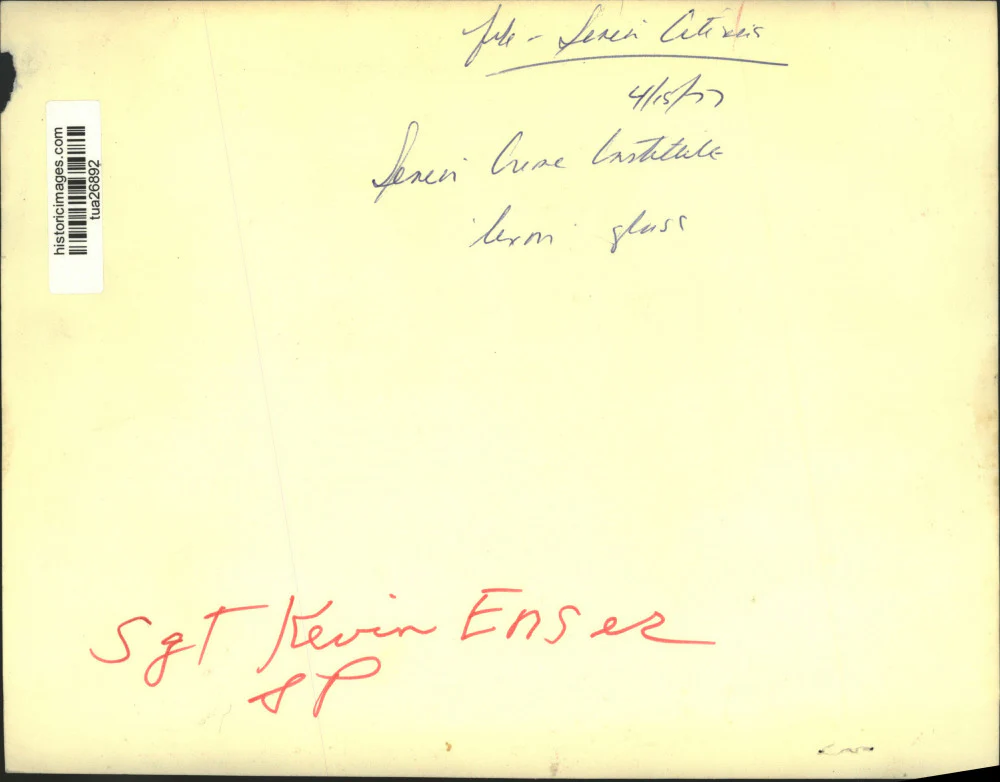 file - Senior Citizens
4/15/77
Senior Crime Institute
glass
historicimages.com
tua26892
Sgt Kevin Enser
SP